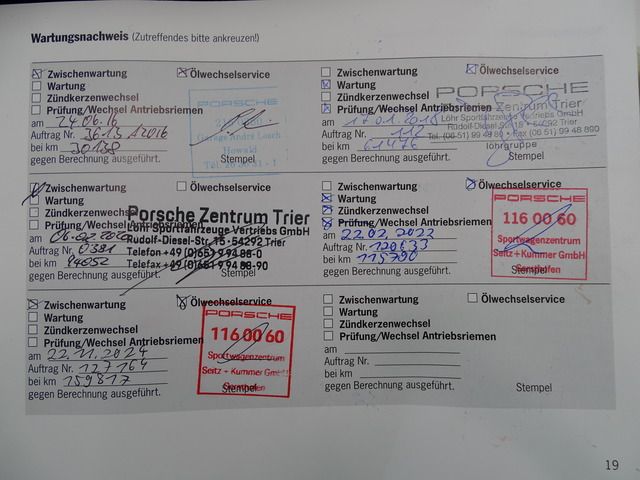 Wartungsnachweis (Zutreffendes bitte ankreuzen!)
Zwischenwartung Ölwechselservice
Wartung
Zündkerzenwechsel
Prüfung/Wechsel Antriebsriemen
am 24.06.16
Auftrag Nr.
bei km 30138
gegen Berechnung ausgeführt. Stempel
PORSCHE
Garage André Losch
Howald
Zwischenwartung Ölwechselservice
Wartung
Zündkerzenwechsel
Prüfung/Wechsel Antriebsriemen
am
Auftrag Nr.
bei km 61476
gegen Berechnung ausgeführt. Stempel
PORSCHE
Porsche Zentrum Trier
Löhr Sportfahrzeuge Vertriebs GmbH
Rudolf-Diesel-Str. 15 - 54292 Trier
Tel. (06 51) 9 94 88 0 • Fax (06 51) 9 94 88 90
löhrgruppe
Zwischenwartung Ölwechselservice
Wartung
Zündkerzenwechsel
Prüfung/Wechsel Antriebsriemen
am
Auftrag Nr. 6381
bei km 94052
gegen Berechnung ausgeführt. Stempel
Porsche Zentrum Trier
Löhr Sportfahrzeuge Vertriebs GmbH
Rudolf-Diesel-Str. 15 - 54292 Trier
Telefon +49 (0)651 9 94 88-0
Telefax +49 (0)651 9 94 88-90
Zwischenwartung Ölwechselservice
Wartung
Zündkerzenwechsel
Prüfung/Wechsel Antriebsriemen
am 22.02.2022
Auftrag Nr. 120633
bei km 115790
gegen Berechnung ausgeführt. Stempel
PORSCHE
116 00 60
Sportwagenzentrum
Seitz + Kummer GmbH
Zwischenwartung Ölwechselservice
Wartung
Zündkerzenwechsel
Prüfung/Wechsel Antriebsriemen
am 22.11.2024
Auftrag Nr. 127164
bei km 159817
gegen Berechnung ausgeführt. Stempel
PORSCHE
116 00 60
Sportwagenzentrum
Seitz + Kummer GmbH
Zwischenwartung Ölwechselservice
Wartung
Zündkerzenwechsel
Prüfung/Wechsel Antriebsriemen
am
Auftrag Nr.
bei km
gegen Berechnung ausgeführt. Stempel
19